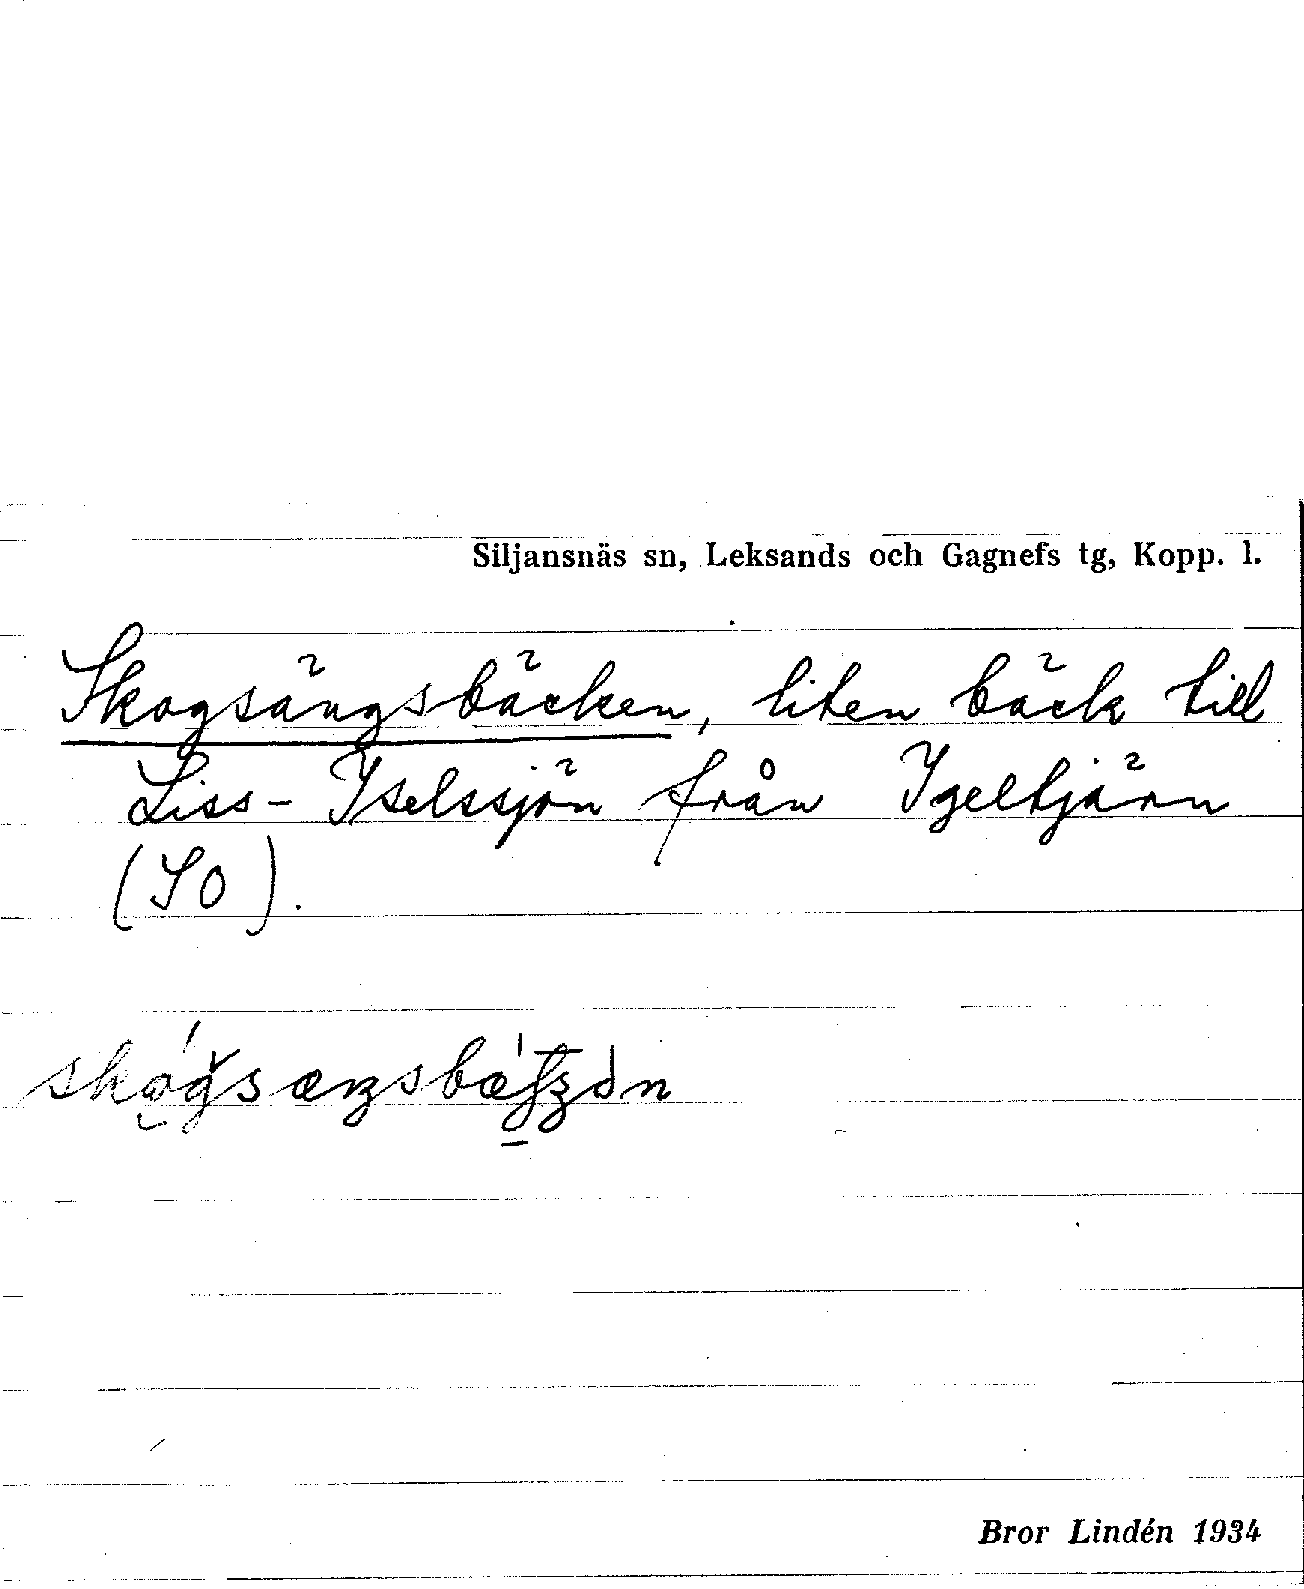 Siljansnäs sn, Leksands och Gagnefs tg, Kopp. l.
Skogsängsbäcken, liten bäck till
Liss-Iselssjön från Igeltjärn
(SO).
Bror Lindén 1934